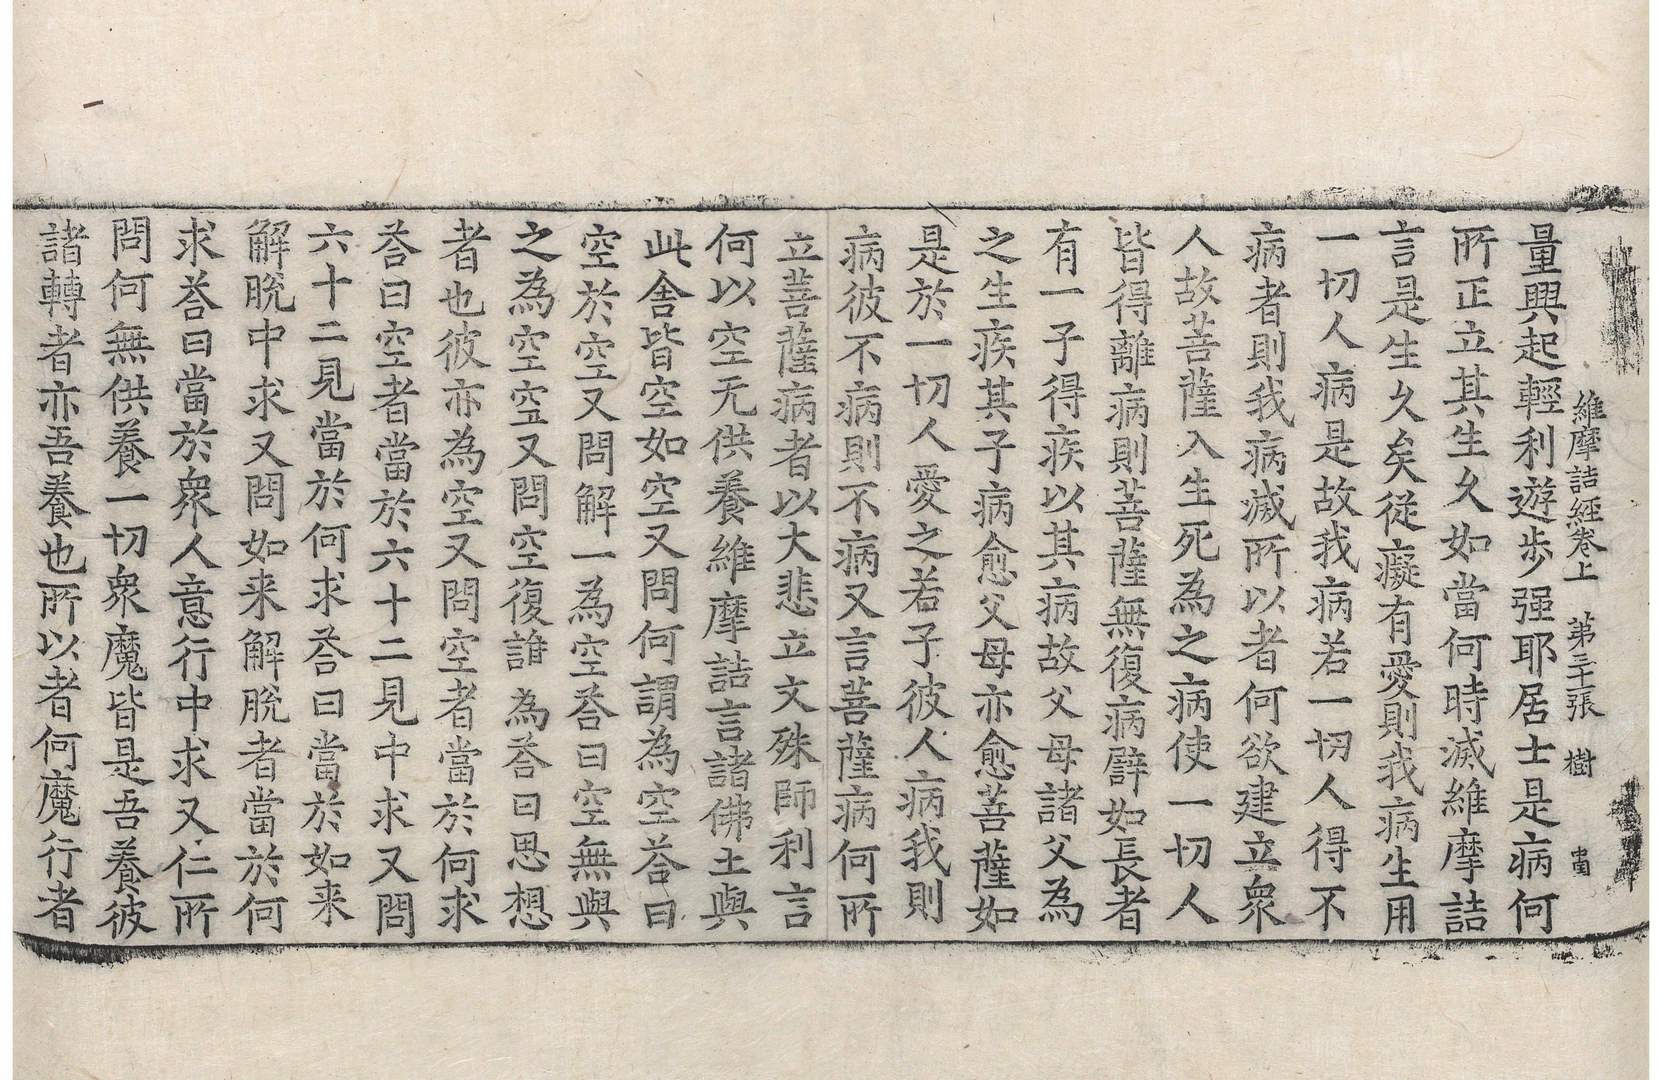 維摩詰經卷上　第三十張　樹
量興起輕利遊步强耶居士是病何
所正立其生久如當何時滅維摩詰
言是生久矣從癡有愛則我病生用
一切人病是故我病若一切人得不
病者則我病滅所以者何欲建立衆
人故菩薩入生死為之病使一切人
皆得離病則菩薩無復病譬如長者
有一子得疾以其病故父母諸父為
之生疾其子病愈父母亦愈菩薩如
是於一切人愛之若子彼人病我則
病彼不病則不病又言菩薩病何所
立菩薩病者以大悲立文殊師利言
何以空无供養維摩詰言諸佛土與
此舍皆空如空又問何謂為空荅曰
空於空又問解一為空荅曰空無與
之為空空又問空復誰為荅曰思想
者也彼亦為空又問空者當於何求
荅曰空者當於六十二見中求又問
六十二見當於何求荅曰當於如来
解脫中求又問如来解脫者當於何
求荅曰當於衆人意行中求又仁所
問何無供養一切衆魔皆是吾養彼
諸轉者亦吾養也所以者何魔行者